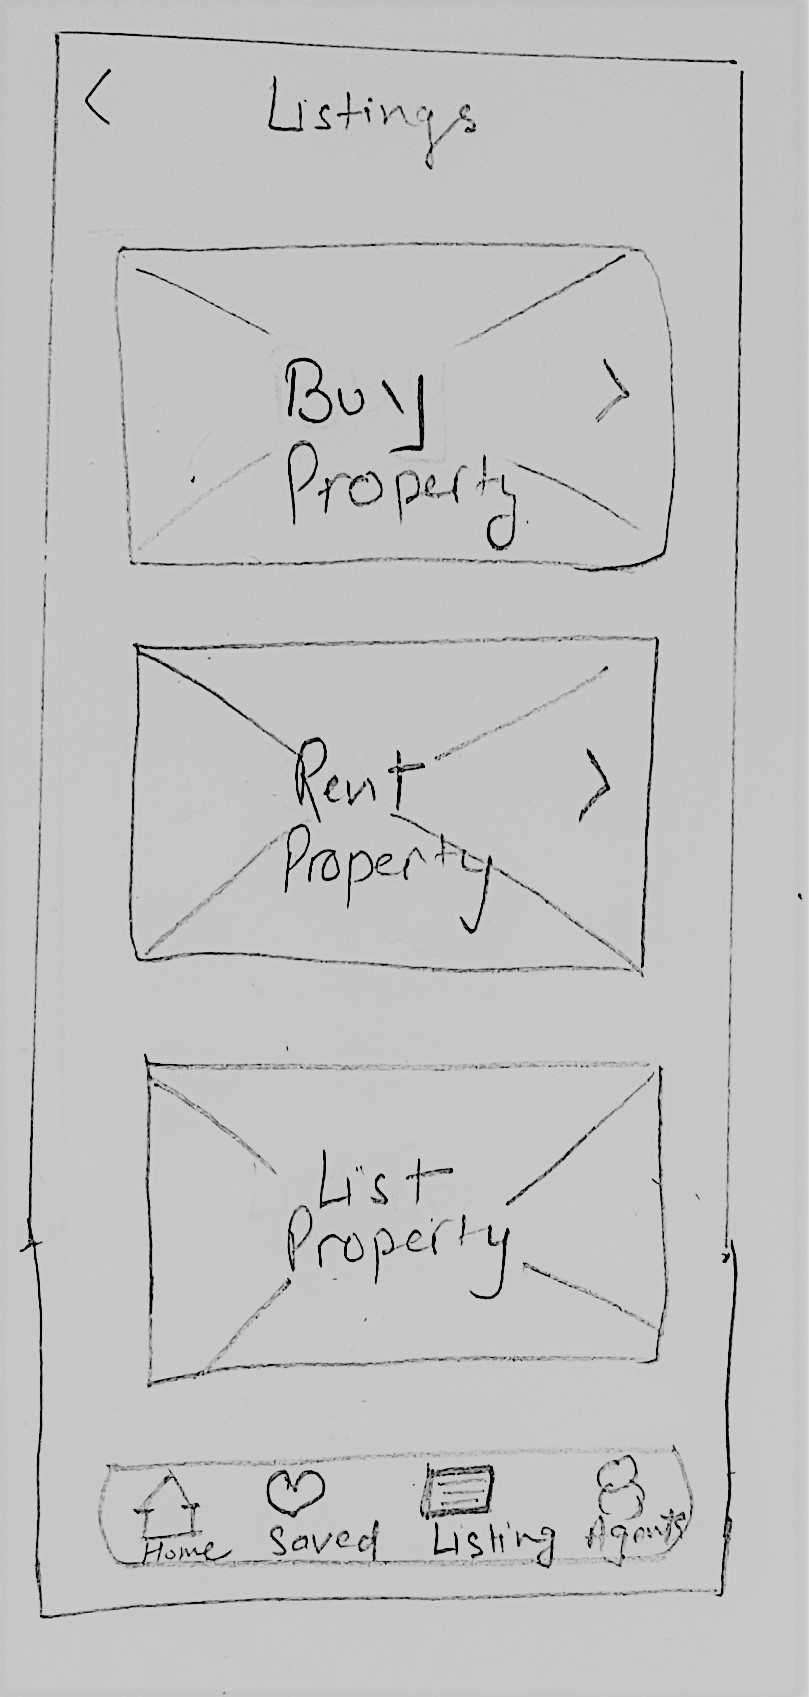 Listings
Buy
Property
Rent
Property
List
Property
Home Saved Listing Agents